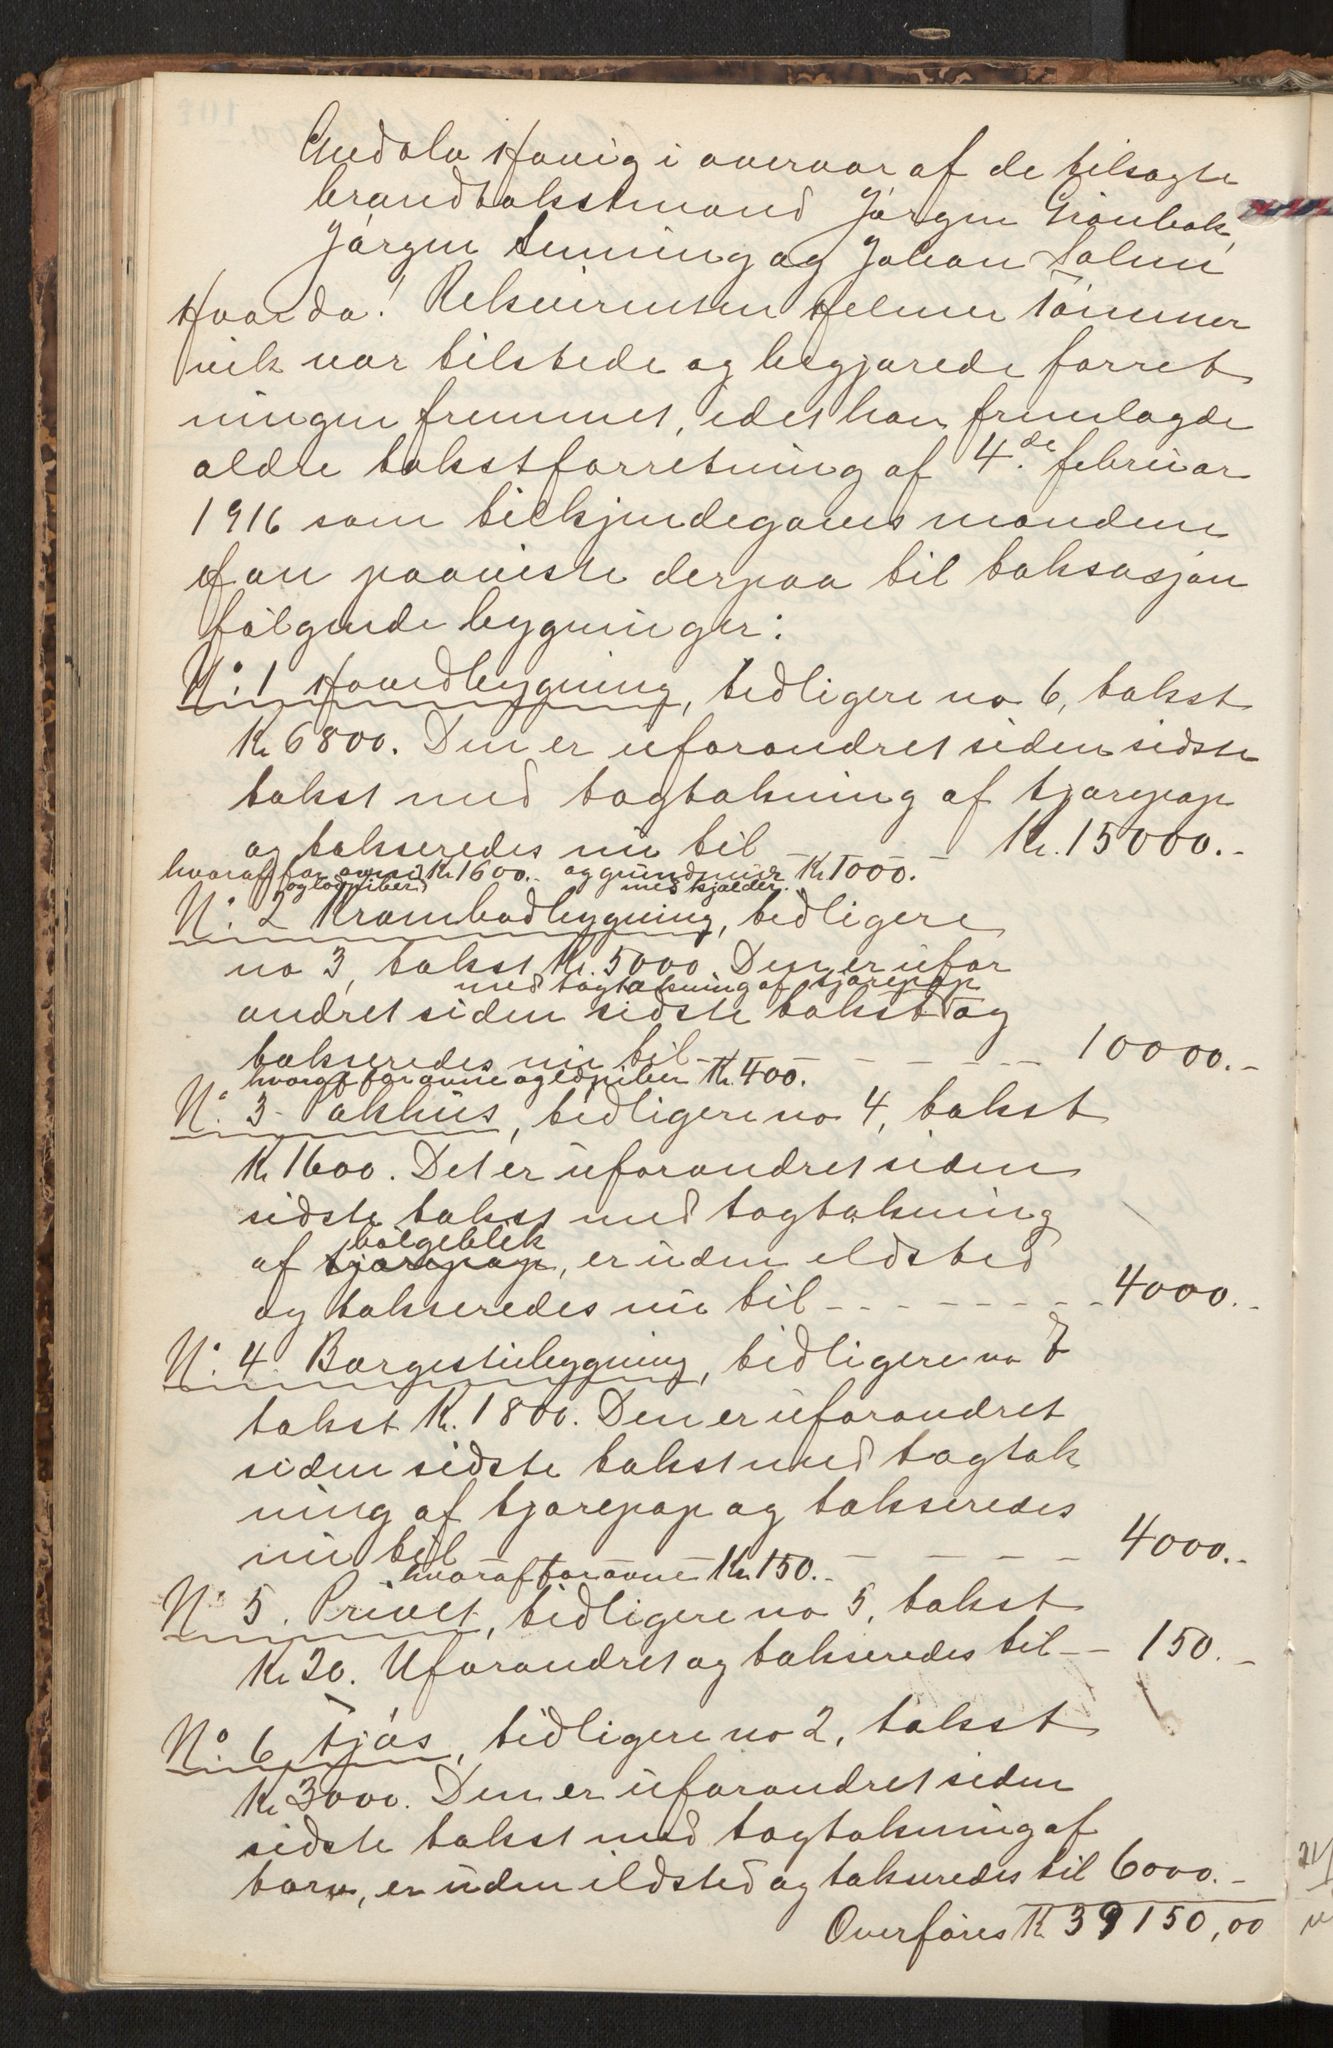 Gudolv Havig i overvær af de tilsagte
brandtakstmænd Jørgen Grønbæk,
Jørgen Lenning og Johan Solem
Hvorda! Rekvirenten Helmer Tømmer
vik var tilstede og begjærede forret
ningen fremmet, idet han fremlagde
ældre takstforretning af 4.de februar
1916 som bekjendegaves mændene
Han paaviste derpaa til taksasjon
følgende bygninger:
No. 1 Hovedbygning, tidligere no 6, takst
Kr 6800. Den er uforandret siden sidste
takst med tagtækning af tjærepap
og takseredes nu til Kr. 15000.-
hvoraf for ovne og ledpiber Kr 1600.- og grundmur med kjælder Kr 1000.-
No. 2 Krambodbygning, tidligere
no 3, takst Kr. 5000. Den er ufor
med tagtækning af tjærepap
andret siden sidste takst og
takseredes nu til - - - - - 10000.-
hvoraf for ovne og ledpiber Kr. 400.
No. 3 Pakhus, tidligere no 4, takst
Kr 1600. Det er uforandret siden
sidste takst med tagtækning
bølgeblik
af tjærepap, er uden ildsted
og takseredes nu til - - - - - - - 4000.-
No. 4. Borgestuebygning, tidligere no 7
takst Kr. 1800. Den er uforandret
siden sidste takst med tagtæk
ning af tjærepap og takseredes
nu til - - - - 4000.-
hvoraf for ovne Kr. 150.-
No 5. Privet, tidligere no 5, takst
Kr 20. Uforandret og takseredes til - - 150.-
No. 6 Fjøs, tidligere no 2, takst
Kr 3000. Den er uforandret siden
sidste takst med tagtækning af
torv, er uden ildsted og takseredes til 6000.-
Overføres Kr 39150,00